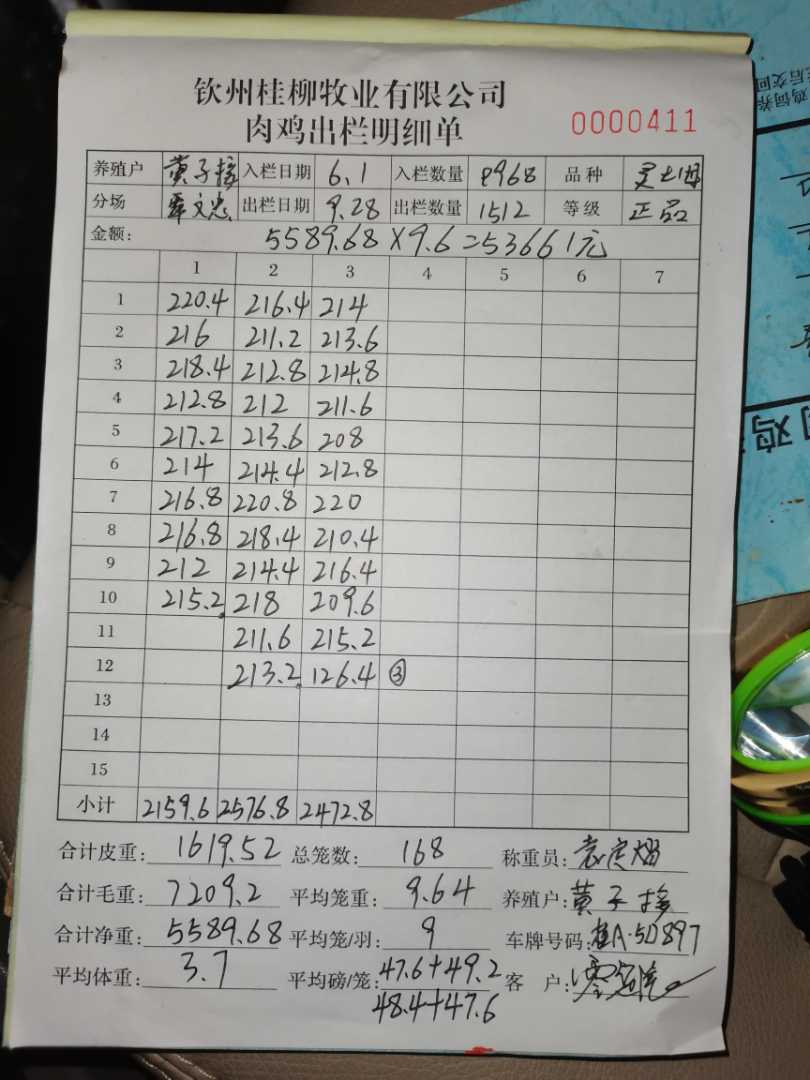 钦州桂柳牧业有限公司
肉鸡出栏明细单 0000411
养殖户 黄子接 入栏日期 6.1 入栏数量 8968 品种
分场 覃文忠 出栏日期 9.28 出栏数量 1512 等级 正品
金额: 5589.68×9.6=53661元
1 2 3 4 5 6 7
1 220.4 216.4 214
2 216 211.2 213.6
3 218.4 212.8 214.8
4 212.8 212 211.6
5 217.2 213.6 208
6 214 214.4 212.8
7 216.8 220.8 220
8 216.8 218.4 210.4
9 212 214.4 216.4
10 215.2 218 209.6
11 211.6 215.2
12 213.2 126.4 ③
13
14
15
小计 2159.6 2576.8 2472.8
合计皮重: 1619.52 总笼数: 168 称重员:
合计毛重: 7209.2 平均笼重: 9.64 养殖户: 黄子接
合计净重: 5589.68 平均笼/羽: 9 车牌号码: 桂A·5D897
平均体重: 3.7 平均磅/笼: 47.6+49.2 客 户:
48.4+47.6